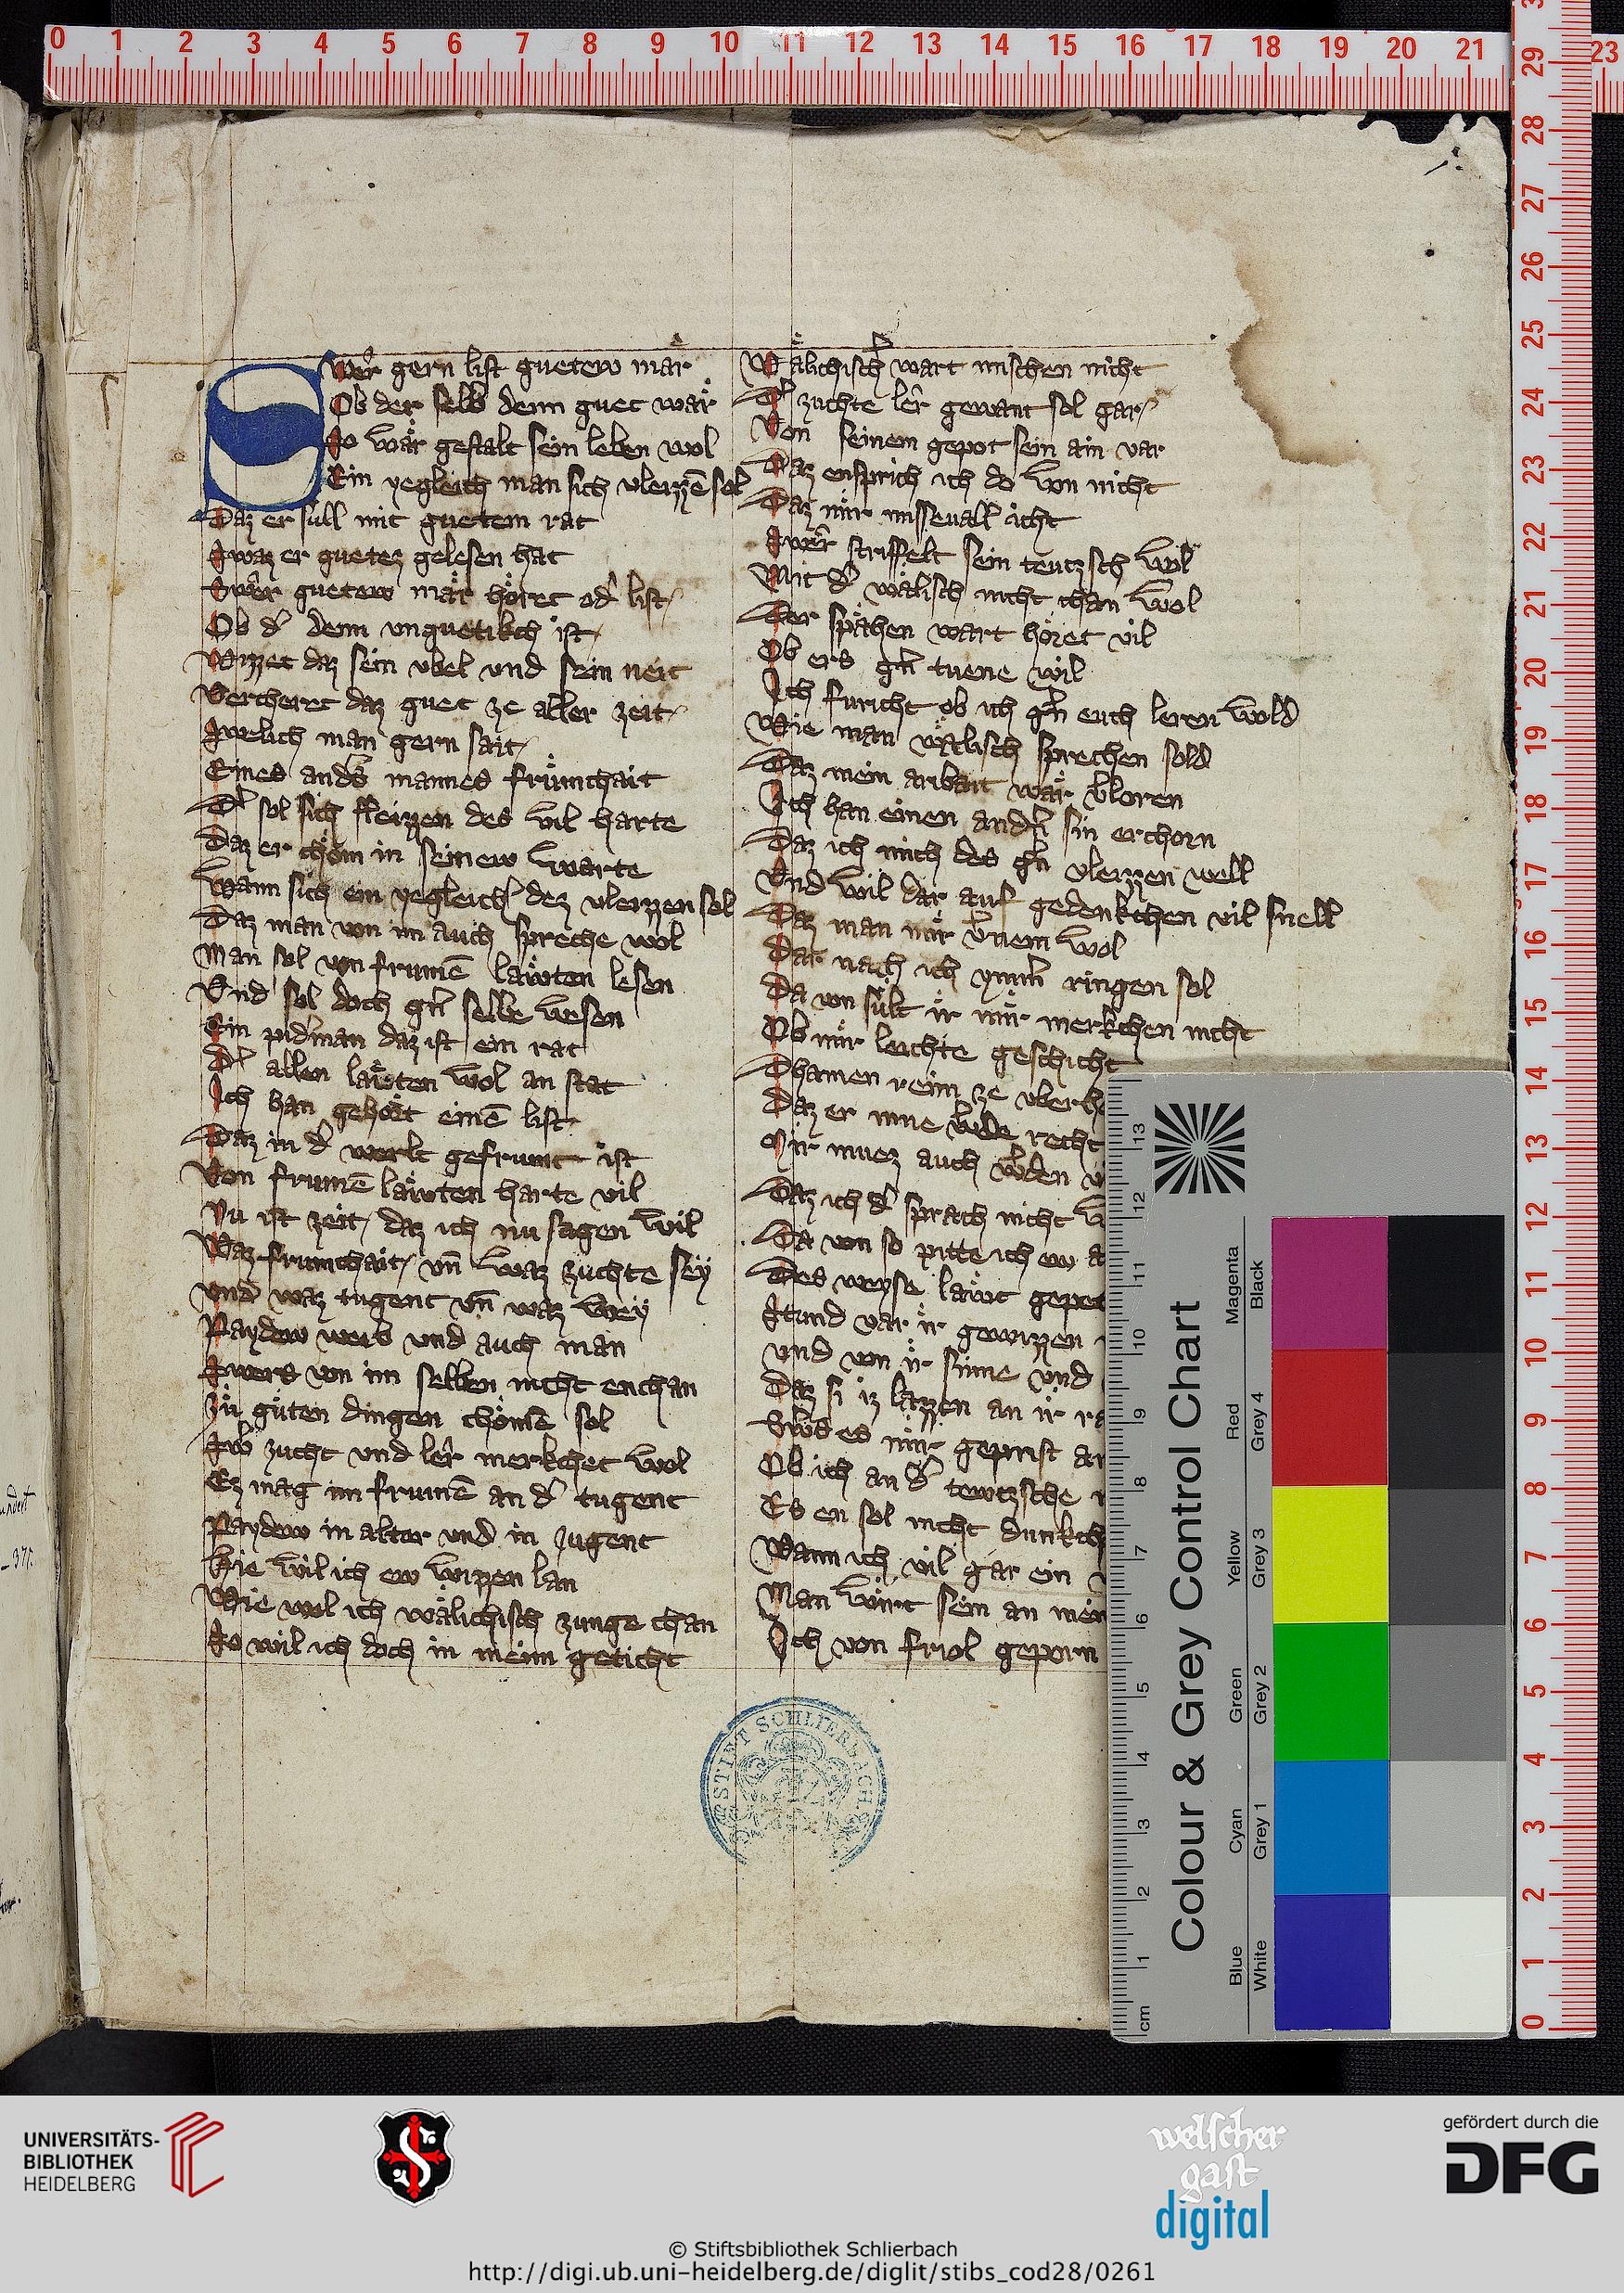 Swer gern list guetew mär
Ob der selb denn guet wär
So wär gestalt sein leben wol
Ein yegleich man sich vleizzē sol
Daz er sull mit guetem rat
Swaz er guetez gelesen hat
Swer guetew mär höret od' list
Ob d' denn vnguetlich ist
Wizzet daz sein vbel vnd sein neit
Vercheret daz guet ze aller zeit
Swelich man gern sait
Eines anders mannes frümchait
D' sol sich fleizzen des vil harte
Daz er chöm in seinew warte
Wann sich ein yegleich' dez vleizzen sol
Daz man von im auch spreche wol
Man sol von frumē läwten lesen
Vnd sol doch g'n selbe wesen
Ein pid'man daz ist ein rat
D' allen läwten wol an stat
Ich han gehört einē list
Daz in d' werlt gefrumt ist
Von frumē läwten harte vil
Nu ist zeit daz ich nu sagen wil
Waz frumchait vn̄ waz zuchte sey
vnd waz tugent vn̄ waz wey
Paydew weib vnd auch man
Swers von im selben nicht enchan
Zü güten dingen chömē sol
Sw' zucht vnd ler merkchet wol
Ez mag im frumē an d' tugent
Paydew in alter vnd in Jugent
Hie wil ich ew wizzen lan
Wie wol ich wälichisch zunge chan
So wil ich doch in meim geticht
Wälichisch' wart mischen nicht
D' zuchte ler gewant sol gar
Von seinem gepot sein ain var
Daz ensprich ich do von nicht
Daz mir missevall icht
Swer striffelt sein teutzsch wil
Mit d' wälisch nicht chan wol
Der spähen wart höret vil
Ob ers g'n tuene wil
Ich furicht ob ich g'n euch leren wold
Wie man wälisch sprechen sold
Daz mein aribait wär v'loren
Ich han einen and'n sin erchorn
Daz ich mich des g'n vleizzen well
Vnd wil dar auf gedenkchen vil snell
Daz man mir v'nem wol
Dar nach ich ymm' ringen sol
Da von sült ir mir merkchen nicht
Ob mir leichte geschicht
Dhainen reim ze vberh
Daz er inne w'de recht
Mir muez auch w'den
Daz ich d' sprach nicht
Da von so pitte ich ew a
Des weyse läwt gepet
Stund var ir gewizzen
vnd von ir sinne vnd
Daz si iz lazzen an ir
Swes es mir geprist an
Ob ich an d' tewtzsche
Es en sol nicht dunkch
Wann ich vil gar ein
Man wirt sein an mein
Ich von friol geporn
STIFT SCHLIERBACH
Colour & Grey Control Chart
Magenta Black
Red Grey 4
Yellow Grey 3
Green Grey 2
Cyan Grey 1
Blue White
cm 1 2 3 4 5 6 7 8 9 10 11 12 13
0 1 2 3 4 5 6 7 8 9 10 11 12 13 14 15 16 17 18 19 20 21 23
29 28 27 26 25 24 23 22 21 20 19 18 17 16 15 14 13 12 11 10 9 8 7 6 5 4 3 2 1 0
UNIVERSITÄTS-
BIBLIOTHEK
HEIDELBERG
welscher
gast
digital
gefördert durch die
DFG
© Stiftsbibliothek Schlierbach
http://digi.ub.uni-heidelberg.de/diglit/stibs_cod28/0261